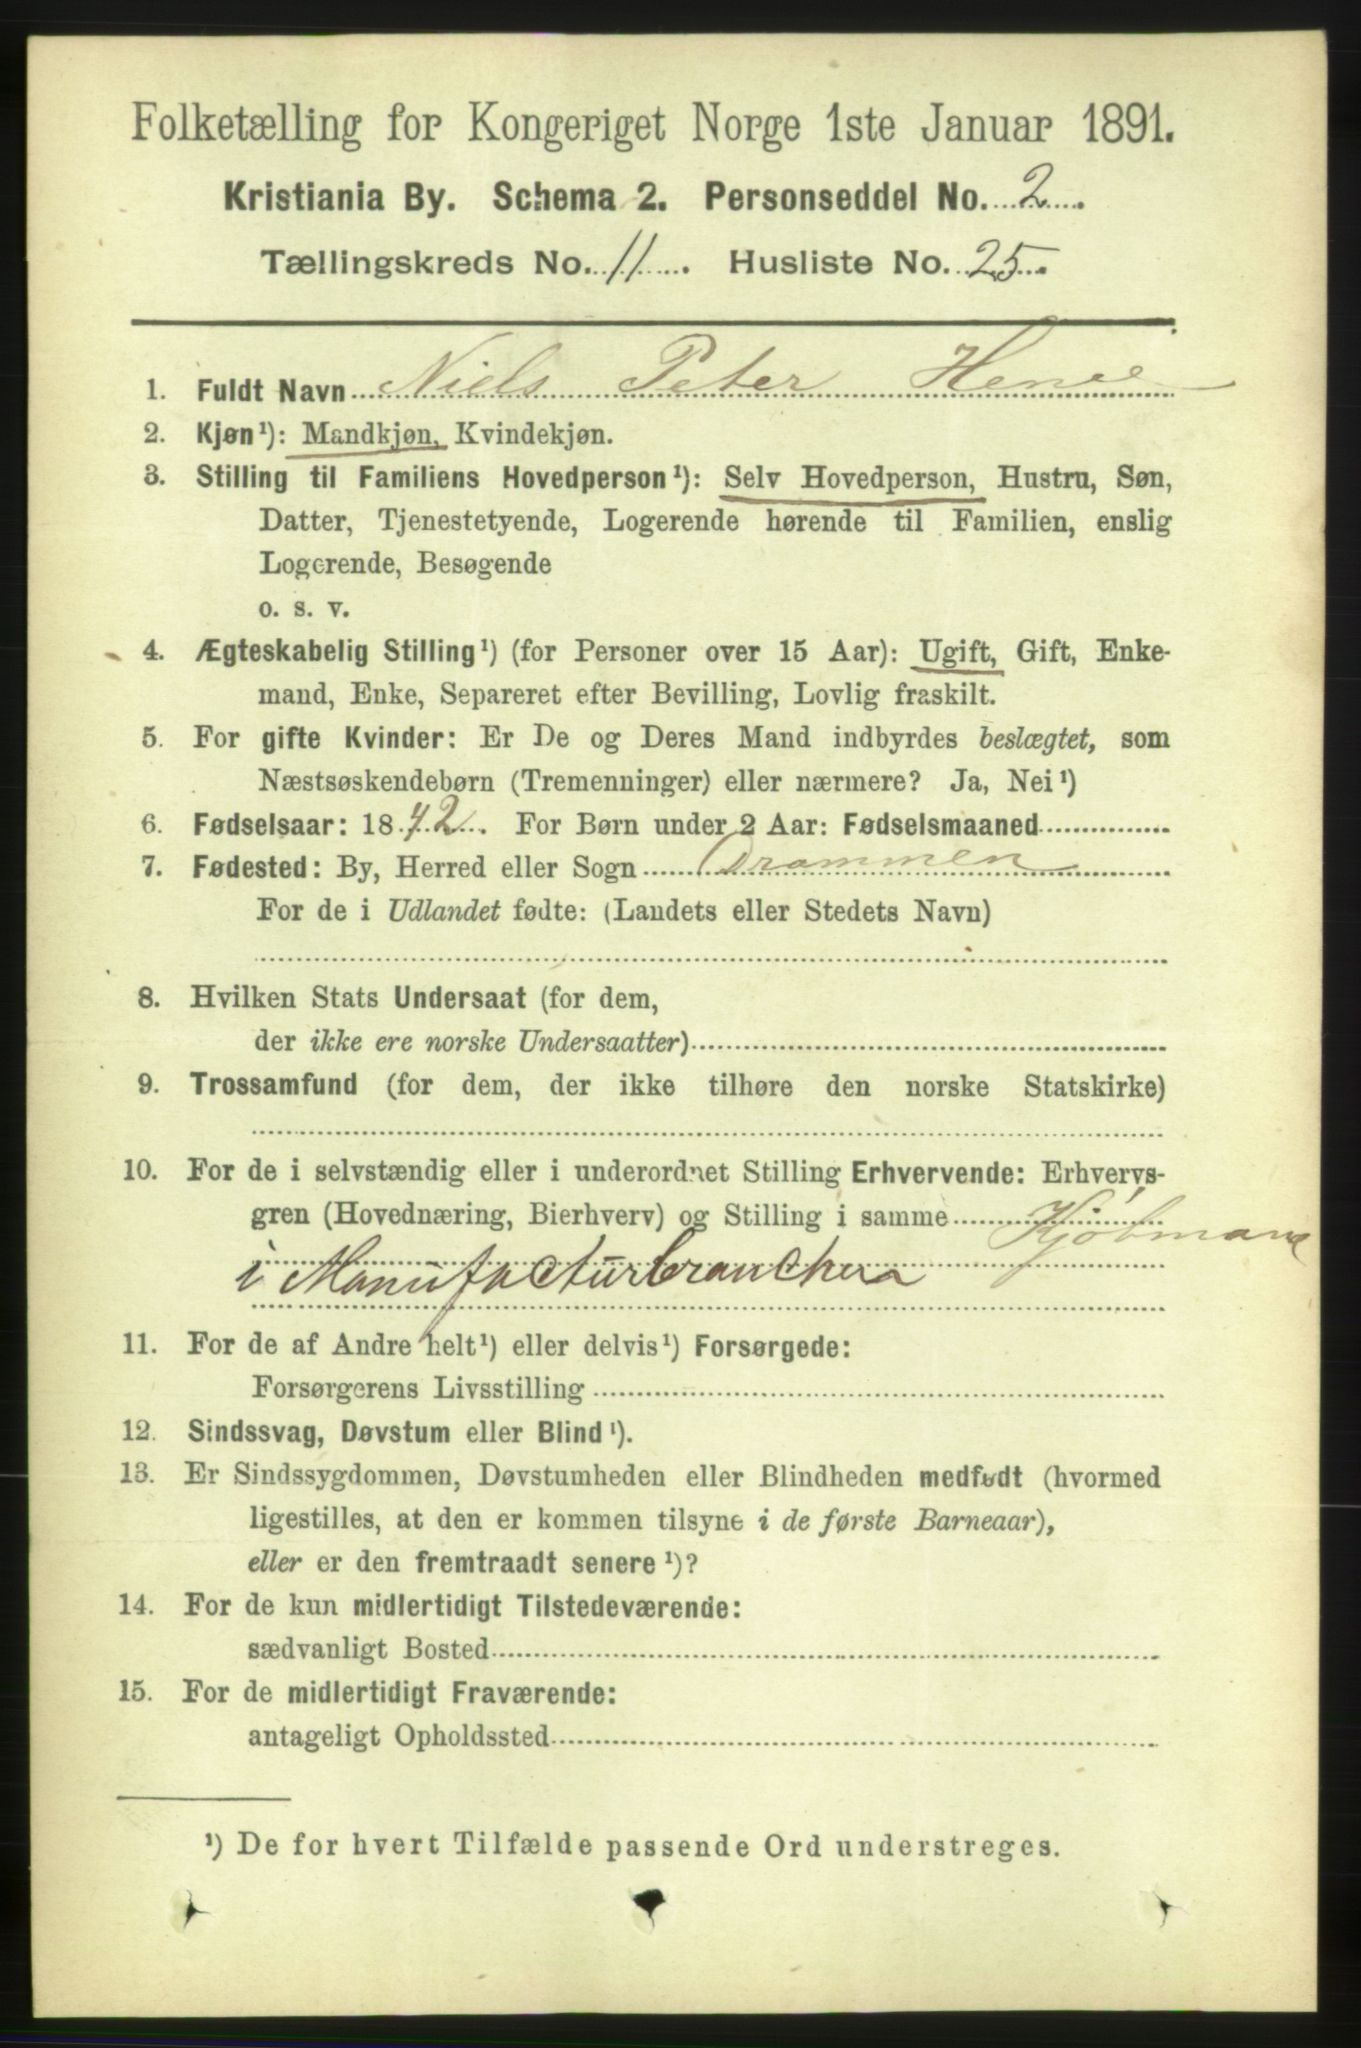 Folketælling for Kongeriget Norge 1ste Januar 1891.
Kristiania By. Schema 2. Personseddel No. 2.
Tællingskreds No. 11. Husliste No. 25.
1. Fuldt Navn Niels Peter
2. Kjøn¹): Mandkjøn, Kvindekjøn.
3. Stilling til Familiens Hovedperson¹): Selv Hovedperson, Hustru, Søn,
Datter, Tjenestetyende, Logerende hørende til Familien, enslig
Logerende, Besøgende
o. s. v.
4. Ægteskabelig Stilling¹) (for Personer over 15 Aar): Ugift, Gift, Enke-
mand, Enke, Separeret efter Bevilling, Lovlig fraskilt.
5. For gifte Kvinder: Er De og Deres Mand indbyrdes beslægtet, som
Næstsøskendebørn (Tremenninger) eller nærmere? Ja, Nei¹)
6. Fødselsaar: 1842. For Børn under 2 Aar: Fødselsmaaned
7. Fødested: By, Herred eller Sogn Drammen
For de i Udlandet fødte: (Landets eller Stedets Navn)
8. Hvilken Stats Undersaat (for dem,
der ikke ere norske Undersaatter)
9. Trossamfund (for dem, der ikke tilhøre den norske Statskirke)
10. For de i selvstændig eller i underordnet Stilling Erhvervende: Erhvervs-
gren (Hovednæring, Bierhverv) og Stilling i samme Kjøbmand
i Manufacturbranchen
11. For de af Andre helt¹) eller delvis¹) Forsørgede:
Forsørgerens Livsstilling
12. Sindssvag, Døvstum eller Blind¹).
13. Er Sindssygdommen, Døvstumheden eller Blindheden medfødt (hvormed
ligestilles, at den er kommen tilsyne i de første Barneaar),
eller er den fremtraadt senere¹)?
14. For de kun midlertidigt Tilstedeværende:
sædvanligt Bosted
15. For de midlertidigt Fraværende:
antageligt Opholdssted
¹) De for hvert Tilfælde passende Ord understreges.